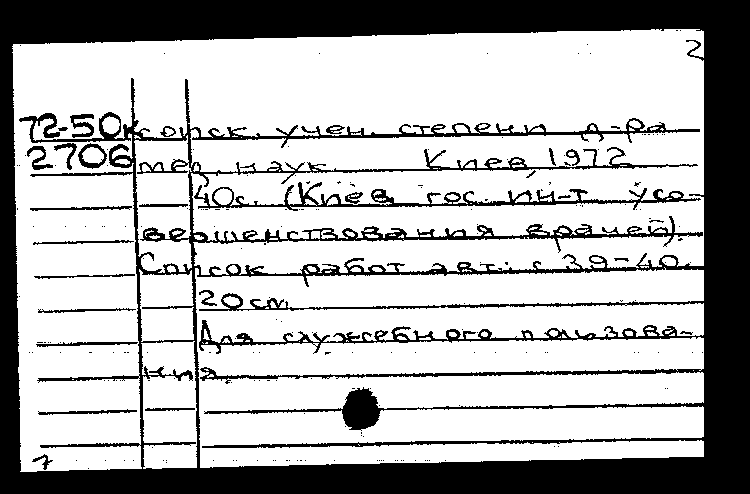 2
72-50к соиск. учен. степени д-ра
2706 мед. наук Киев, 1972
40с. (Киев. гос. ин-т усо-
вершенствования врачей).
Список работ авт.: с 39-40.
20см.
Для служебного пользова-
ния.
7